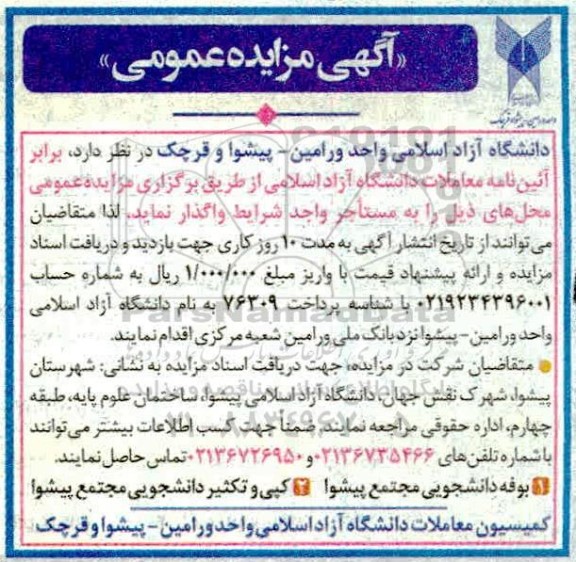 «آگهی مزایده عمومی»
دانشگاه آزاد اسلامی واحد ورامین - پیشوا و قرچک در نظر دارد، برابر
آئین‌نامه معاملات دانشگاه آزاد اسلامی از طریق برگزاری مزایده عمومی
محل‌های ذیل را به مستأجر واجد شرایط واگذار نماید. لذا متقاضیان
می‌توانند از تاریخ انتشار آگهی به مدت ۱۰ روز کاری جهت بازدید و دریافت اسناد
مزایده و ارائه پیشنهاد قیمت با واریز مبلغ ۱/۰۰۰/۰۰۰ ریال به شماره حساب
۰۲۱۹۲۳۴۳۹۶۰۰۱ با شناسه پرداخت ۷۶۳۰۹ به نام دانشگاه آزاد اسلامی
واحد ورامین - پیشوا نزد بانک ملی ورامین شعبه مرکزی اقدام نمایند.
متقاضیان شرکت در مزایده، جهت دریافت اسناد مزایده به نشانی: شهرستان
پیشوا، شهرک نقش جهان، دانشگاه آزاد اسلامی پیشوا، ساختمان علوم پایه، طبقه
چهارم، اداره حقوقی مراجعه نمایند. ضمناً جهت کسب اطلاعات بیشتر می‌توانند
با شماره تلفن‌های ۰۲۱۳۶۷۳۵۴۶۶ و ۰۲۱۳۶۷۲۶۹۵۰ تماس حاصل نمایند.
۱ بوفه دانشجویی مجتمع پیشوا ۲ کپی و تکثیر دانشجویی مجتمع پیشوا
کمیسیون معاملات دانشگاه آزاد اسلامی واحد ورامین - پیشوا و قرچک
ParsNamadData